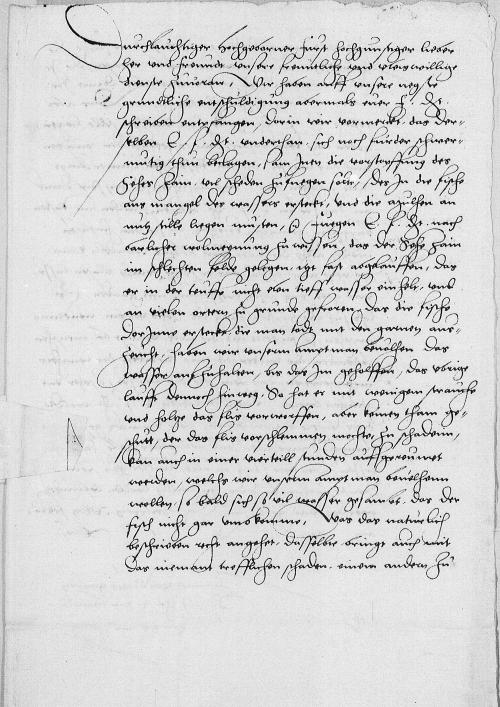 Durchlauchtiger Hochgeborner Furst hochgunstiger lieber
her und freundt unsere freuntliche und vleiswillige
dienste zuvoran, Wir haben auff unsere negste
gruntliche entschuldigung abermals euer f. Dt.
schreiben entpfangen, dorin wir vormerckt, das der-
selben E. f. Dt. underthan sich noch furder schwer-
mutig thun beclagen, sam Inen die vorstopffung des
Sehes Hain, vil schaden zufuegen solte, das In die fische
aus mangel des wassers ersteckt, und die mulhen an
nutz stille liegen musten, So fuegen E. f. Dt. nach-
barlicher wolmeynung zuwissen, das der Sehe Hain
im schlechten felde gelegen, itzt fast abgelauffen, das
er in der teuffe nicht elen tieff wasser ein helt, und
an vielen ortern zu grunde gefroren, das die fische
dor Inne ersteckt, die man todt mit den garnen aus-
zeucht, haben wir unserm Amptman bevolhen das
wasser auffzuhalten, bis das Im geholffen, das ubrige
lauffe dennoch hinweg, So hat er mit wenigem strauche
und holtze das flis vorworffen, aber keinen tham ge-
schutt, der das flis vorschlemmen mochte, zu schadenn,
kan auch in einer vierteill stunden auffgereumet
werden, welchs wir unserm amptman bevelhenn
wollen, so bald sich so vil wasser gesambt, das der
fisch nicht gar umbkomme, Was das naturlich
beschrieben recht angehet, dasselbe bringt auch mit
das niemant trefflichen schaden, einem andern zu